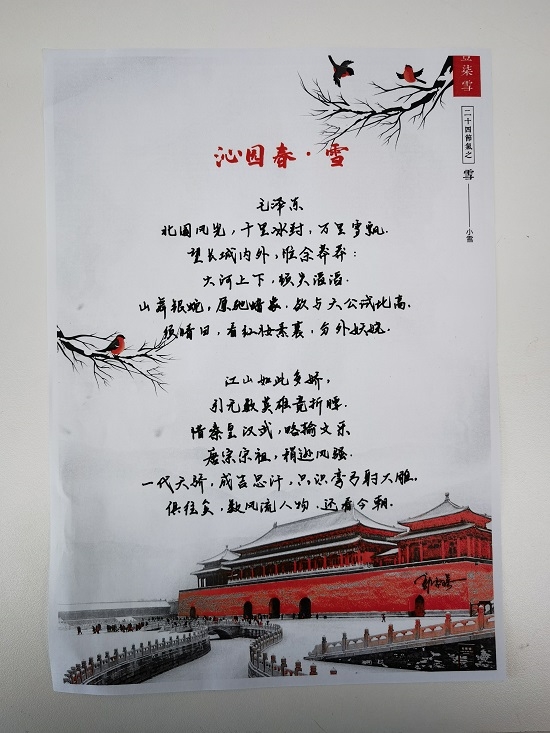 沁园春·雪
毛泽东
北国风光,千里冰封,万里雪飘.
望长城内外,惟余莽莽:
大河上下,顿失滔滔.
山舞银蛇,原驰蜡象,欲与天公试比高.
须晴日,看红妆素裹,分外妖娆.
江山如此多娇,
引无数英雄竞折腰.
惜秦皇汉武,略输文采
唐宗宋祖,稍逊风骚.
一代天骄,成吉思汗,只识弯弓射大雕.
俱往矣,数风流人物,还看今朝.
柒雪
二十四節氣之
雪
小雪